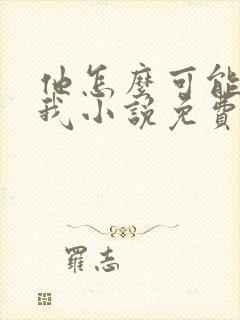 他怎麼可能
我小說免費
羅志